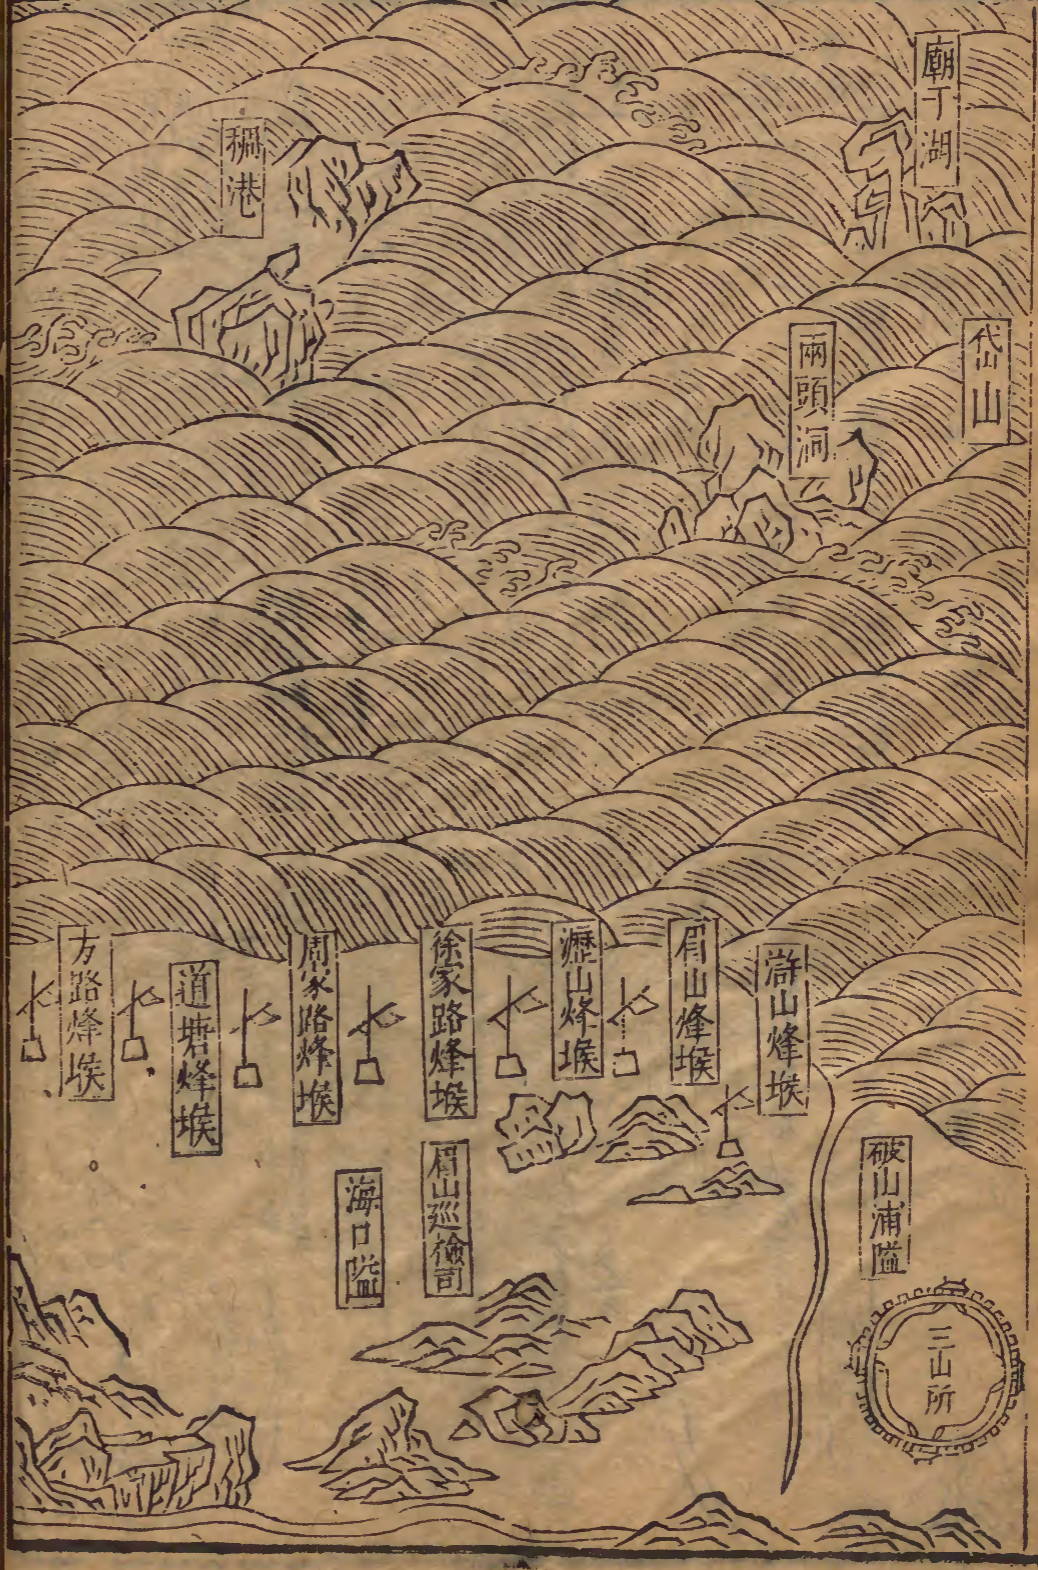 廟丁湖
岱山
兩頭洞
稠港
滸山烽堠
眉山烽堠
瀝山烽堠
徐家路烽堠
周家路烽堠
道塘烽堠
方路烽堠
破山浦隘
眉山巡檢司
海口隘
三山所